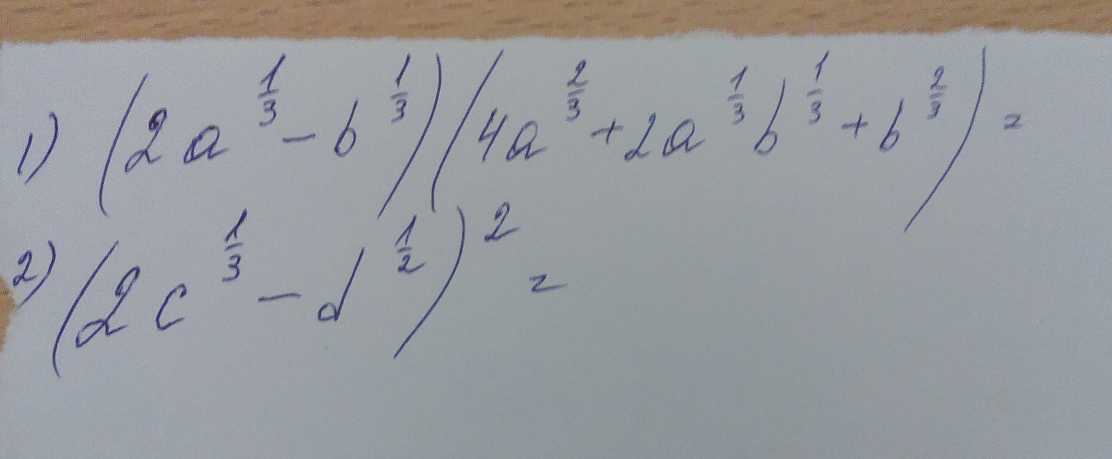 1) (2a^{1/3} - b^{1/3})(4a^{2/3} + 2a^{1/3}b^{1/3} + b^{2/3}) =
2) (2c^{1/3} - d^{1/2})^2 =